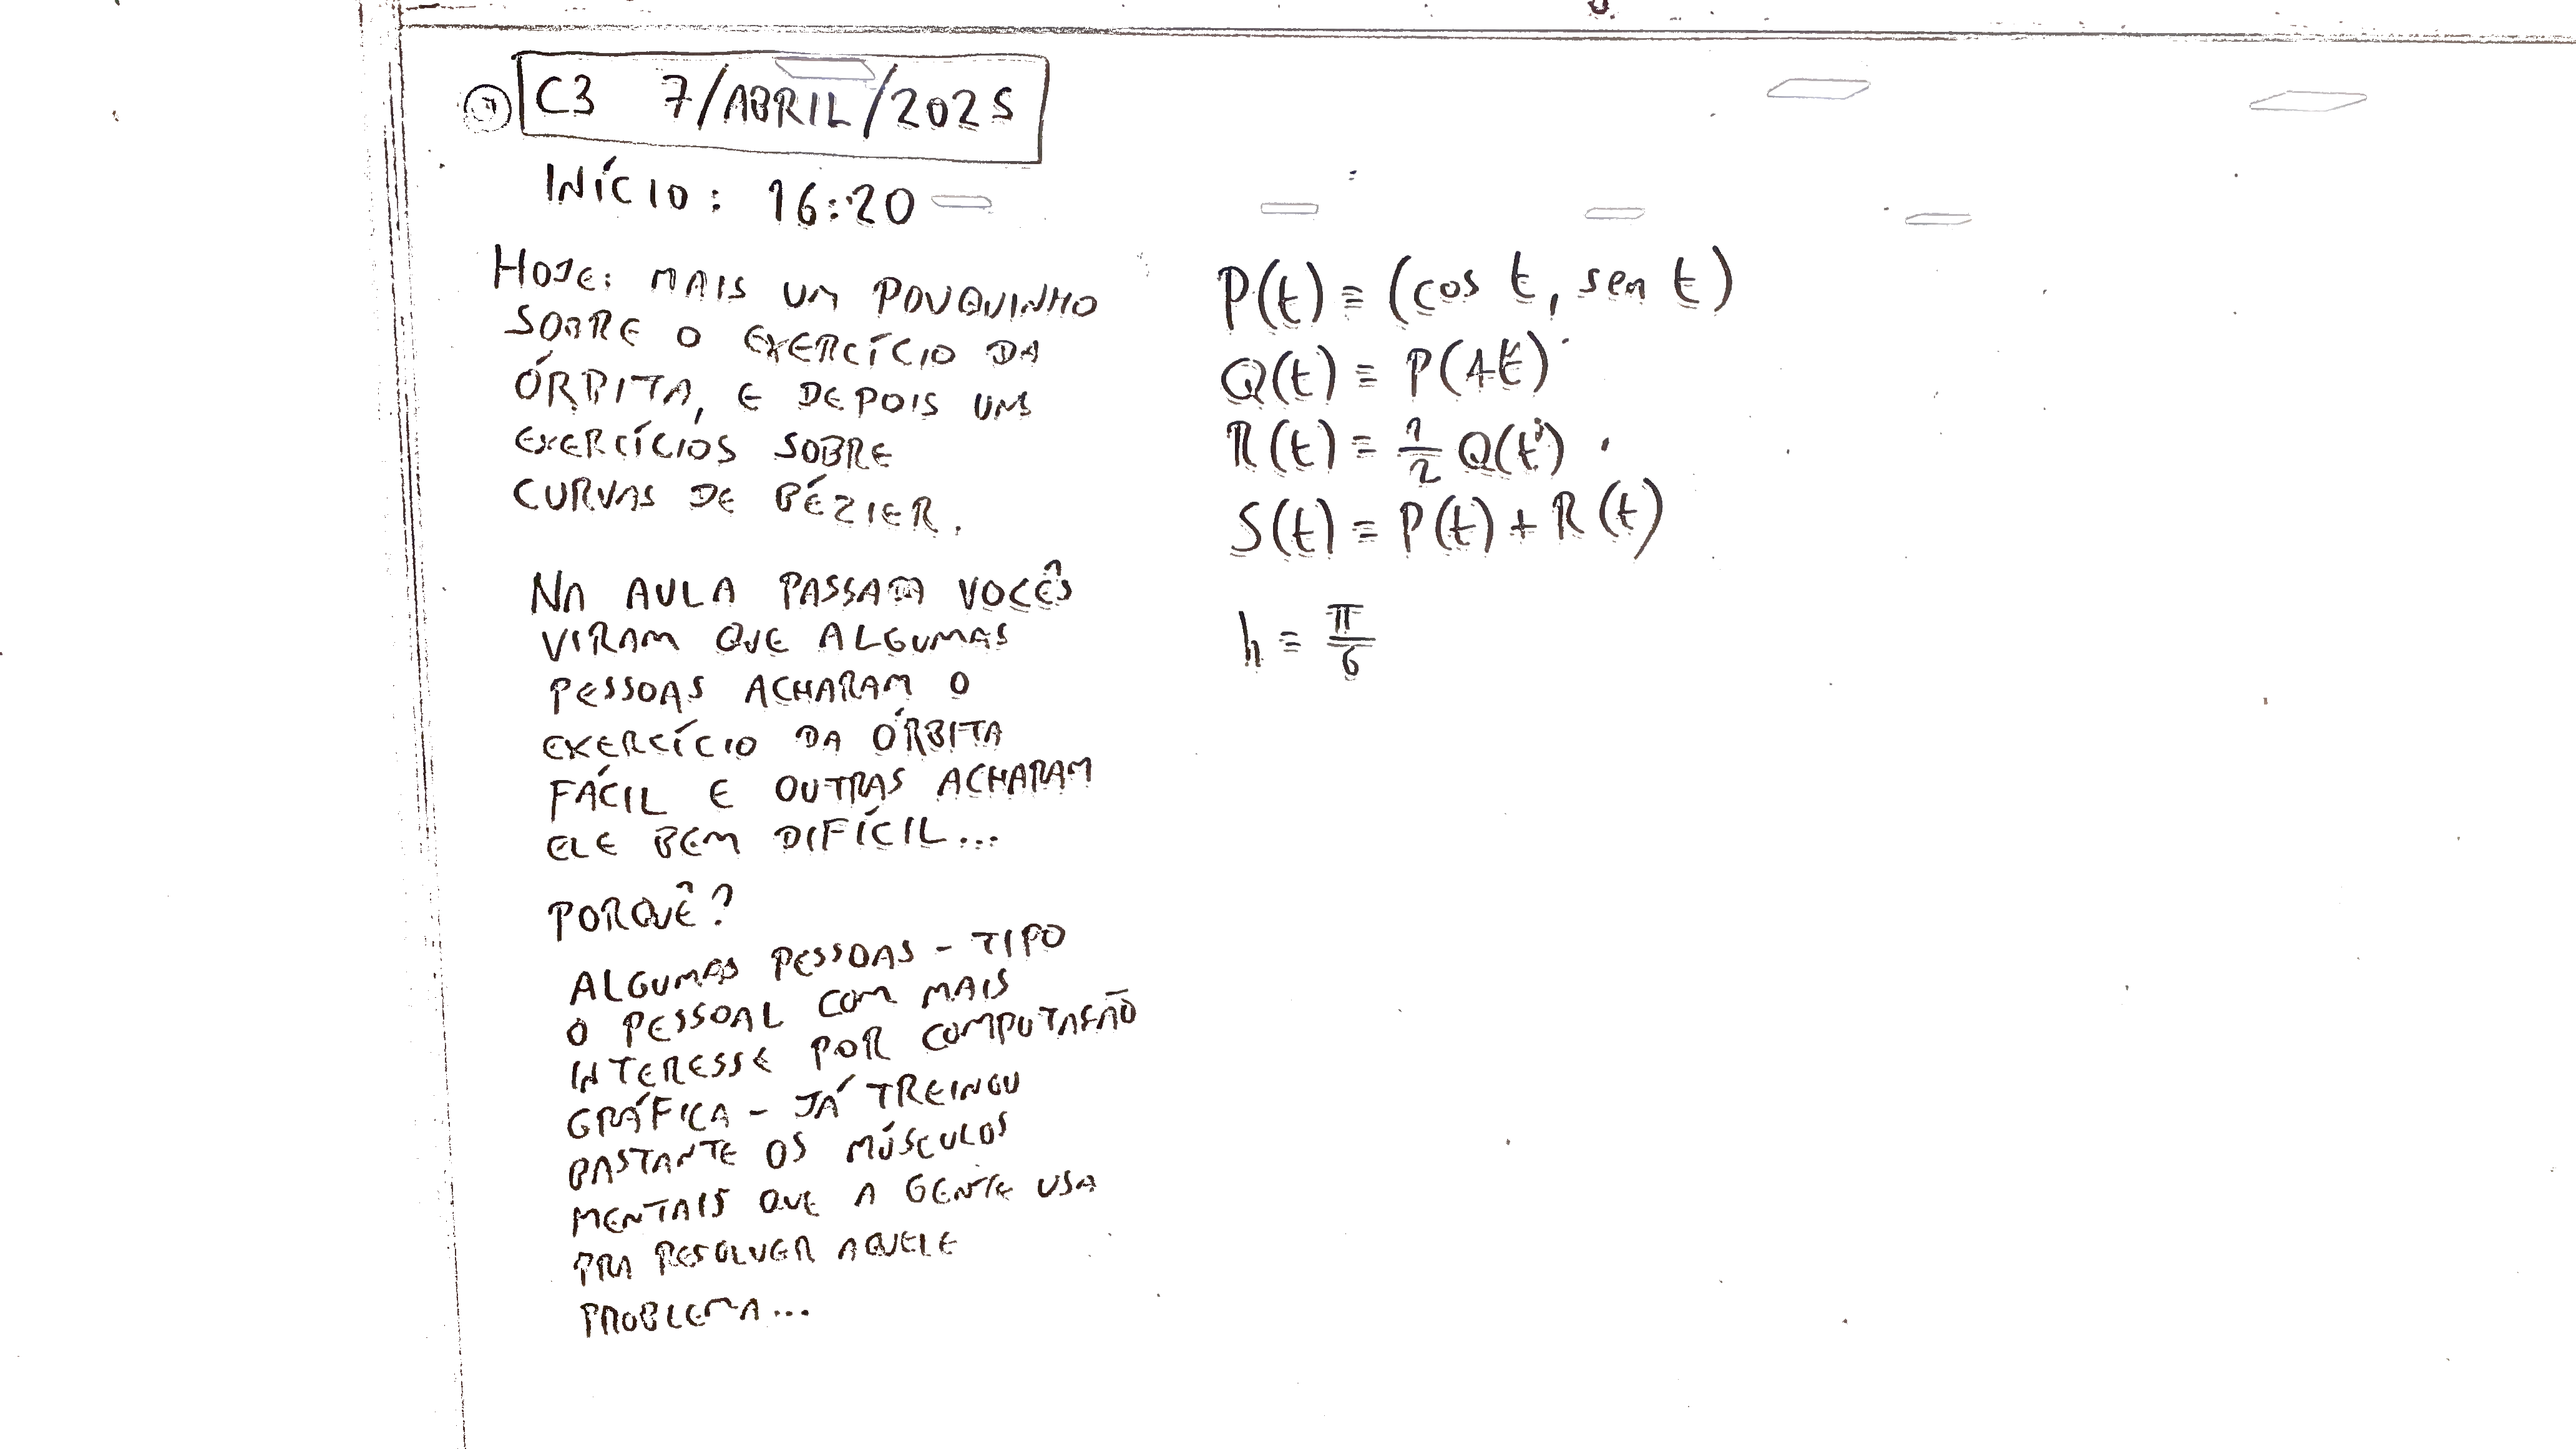 C3 7/ABRIL/2025
INÍCIO: 16:20
HOJE: MAIS UM POUQUINHO
SOBRE O EXERCÍCIO DA
ÓRBITA, E DEPOIS UNS
EXERCÍCIOS SOBRE
CURVAS DE BÉZIER.
NA AULA PASSADA VOCÊS
VIRAM QUE ALGUMAS
PESSOAS ACHARAM O
EXERCÍCIO DA ÓRBITA
FÁCIL E OUTRAS ACHARAM
ELE BEM DIFÍCIL...
PORQUÊ?
ALGUMAS PESSOAS - TIPO
O PESSOAL COM MAIS
INTERESSE POR COMPUTAÇÃO
GRÁFICA - JÁ TREINOU
BASTANTE OS MÚSCULOS
MENTAIS QUE A GENTE USA
PRA RESOLVER AQUELE
PROBLEMA...
P(t) ≡ (cos t, sen t)
Q(t) ≡ P(4t)
R(t) ≡ 1/2 Q(t)
S(t) ≡ P(t) + R(t)
h ≡ π/6